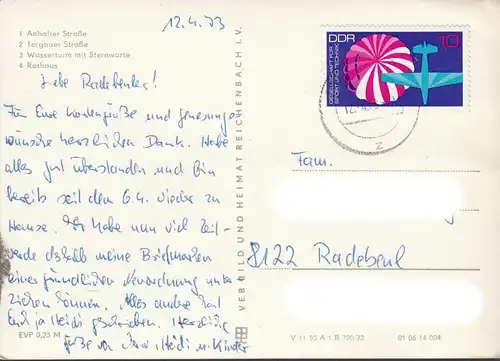 12.4.73
1 Anhalter Straße
2 Torgauer Straße
3 Wasserturm mit Sternwarte
4 Rathaus
Liebe Radebeuler!
Für Eure Kartengrüße und Genesungs-
wünsche herzlichen Dank. Habe
alles gut überstanden und bin
bereits seit dem 6.4. wieder zu
Hause. Ich habe nun viel Zeit –
werde deshalb meine Briefmarken
einer gründlichen Neuordnung unter-
ziehen können. Alles andere hat
Euch ja Heidi geschrieben. Herzliche
Grüße von Heidi u. Kinder
EVP 0,25 M
VEB BILD UND HEIMAT REICHENBACH I. V.
DDR
10
GESELLSCHAFT FÜR
SPORT UND TECHNIK
Fam.
8122 Radebeul
01 06 14 004